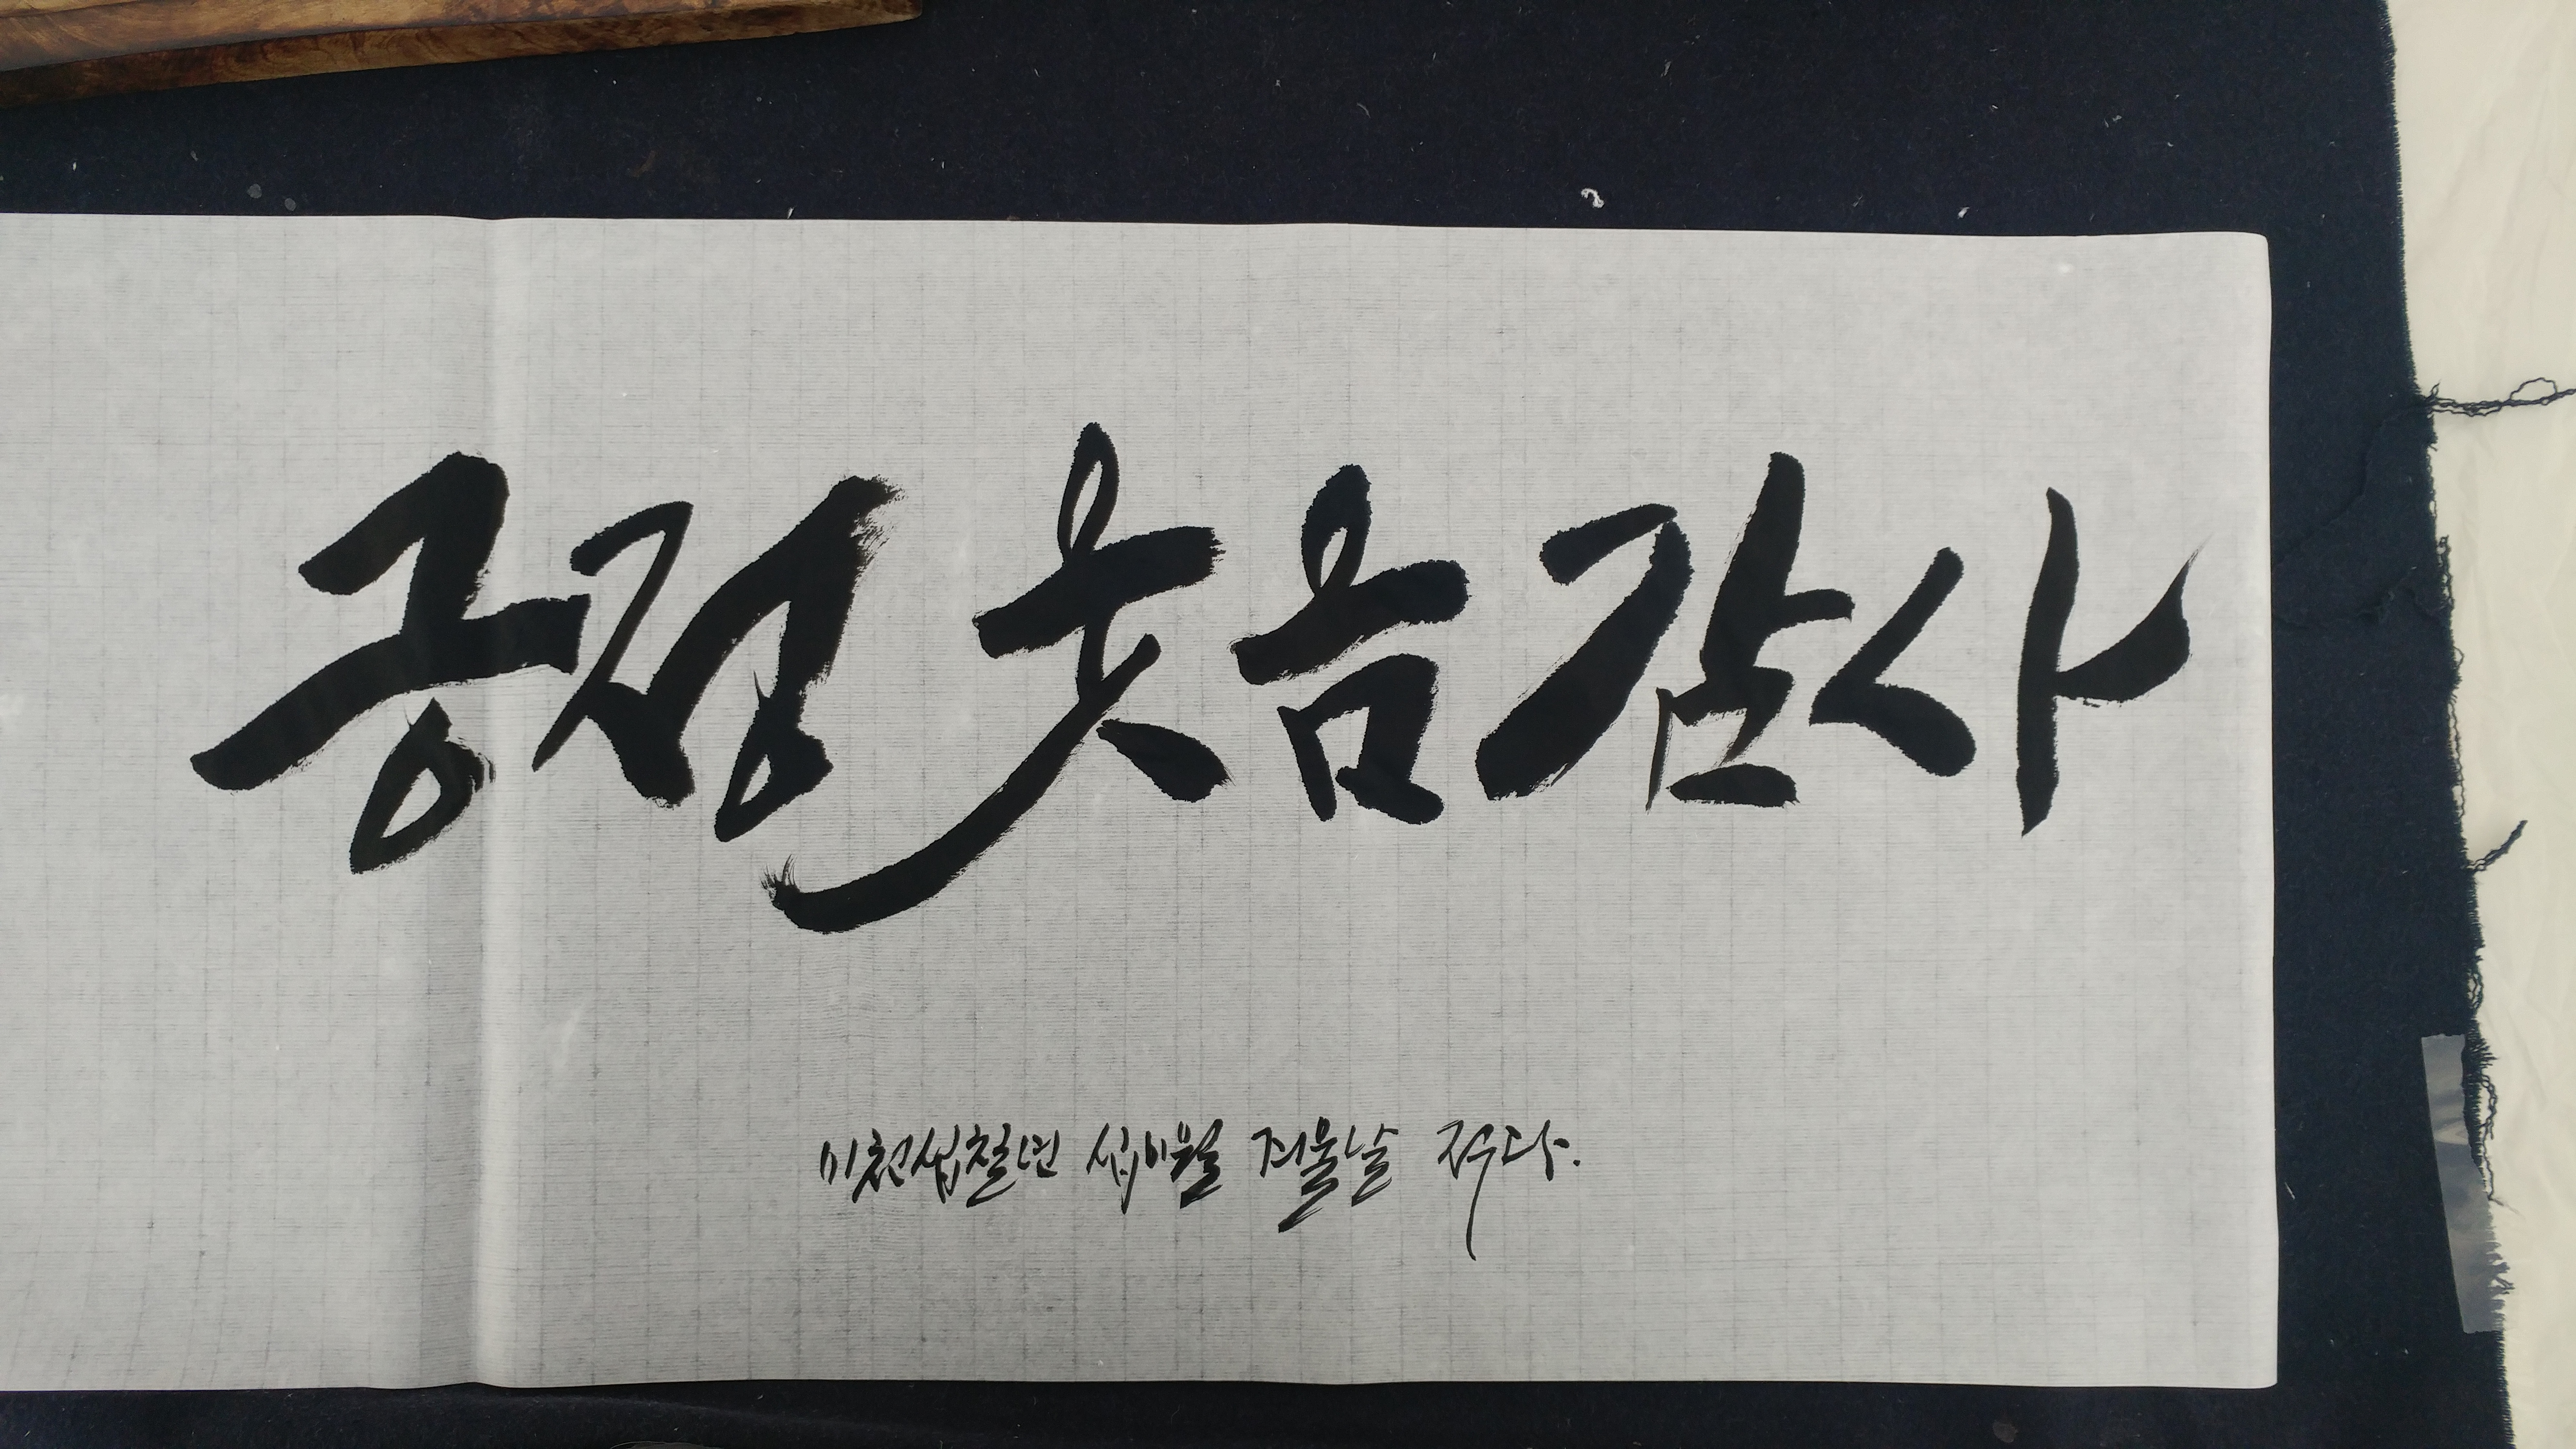 긍정 웃음 감사
이천십칠년 십이월 겨울날 적다.